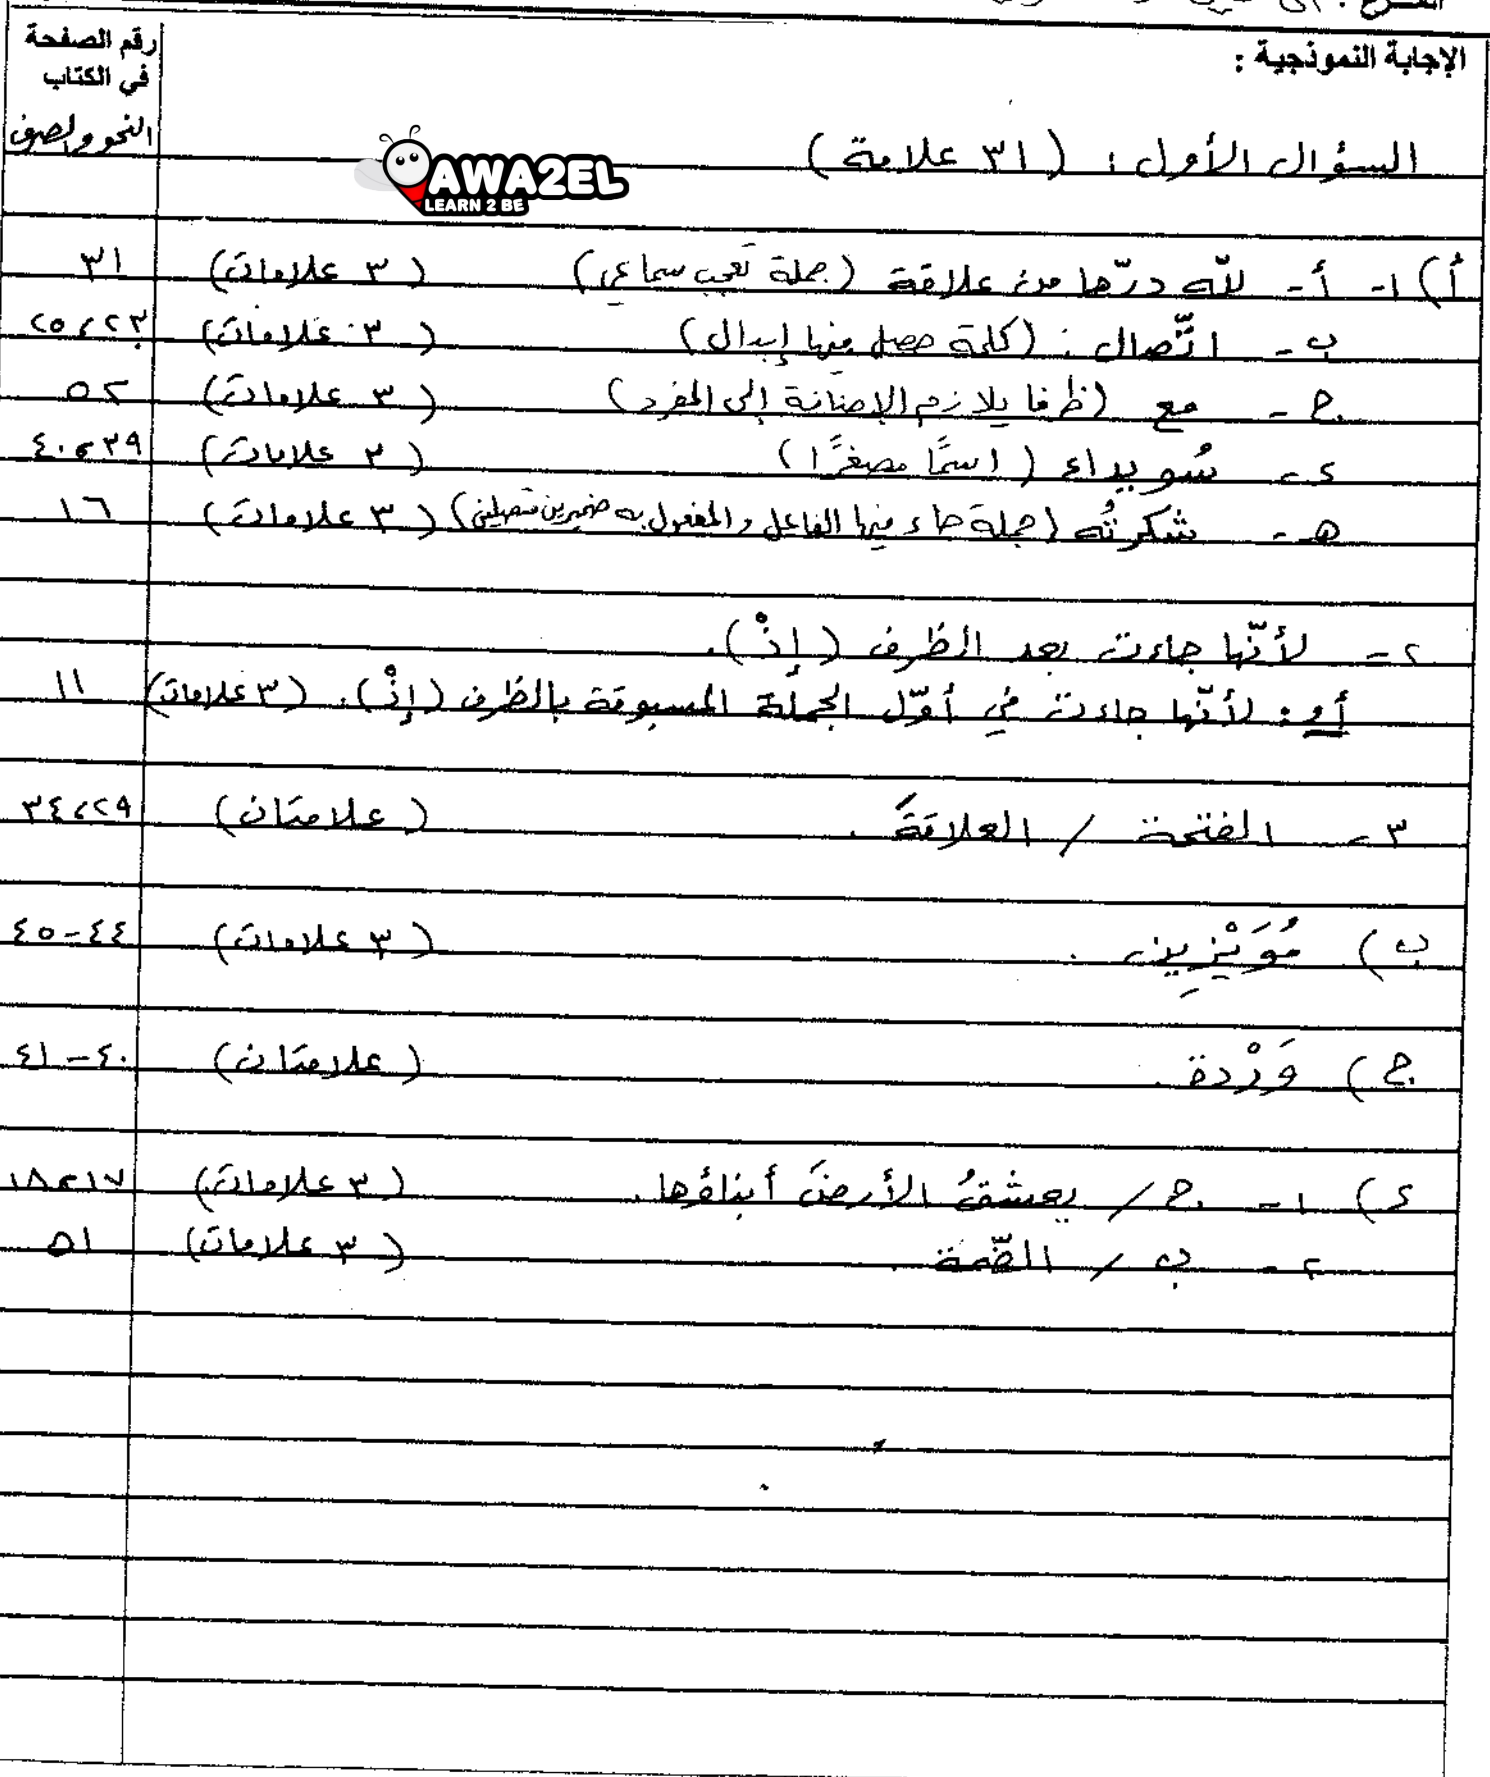 الإجابة النموذجية :
رقم الصفحة
في الكتاب
النحو والصرف
السؤال الأول : (٣١ علامة)
AWA2EL
LEARN 2 BE
أ) ١- أ- للّه درّها من علاقة (جملة تعجب سماعي) (٣ علامات) ٣١
ب- اتّصال : (كلمة حصل فيها إبدال) (٣ علامات) ٢٣، ٢٥
ج- مع (ظرفا يلازم الإضافة إلى المفرد) (٣ علامات) ٥٢
د- سُويداء (اسمًا مصغرًا) (٣ علامات) ٣٩، ٤٠
هـ- شكرتُه (جملة جاء فيها الفاعل والمفعول به ضميرين متصلين) (٣ علامات) ١٦
٢- لأنّها جاءت بعد الظرف (إذْ).
أو : لأنّها جاءت في أوّل الجملة المسبوقة بالظرف (إذْ). (٣ علامات) ١١
٣- الفتحة / العلاقةَ . (علامتان) ٢٩، ٣٤
ب) مُوَيْزِين . (٣ علامات) ٤٤-٤٥
ج) وَرْدة . (علامتان) ٤٠-٤١
د) ١- ج / يعشقُ الأرضَ أبناؤها . (٣ علامات) ١٧، ١٨
٢- ب / الضّمة . (٣ علامات) ٥١